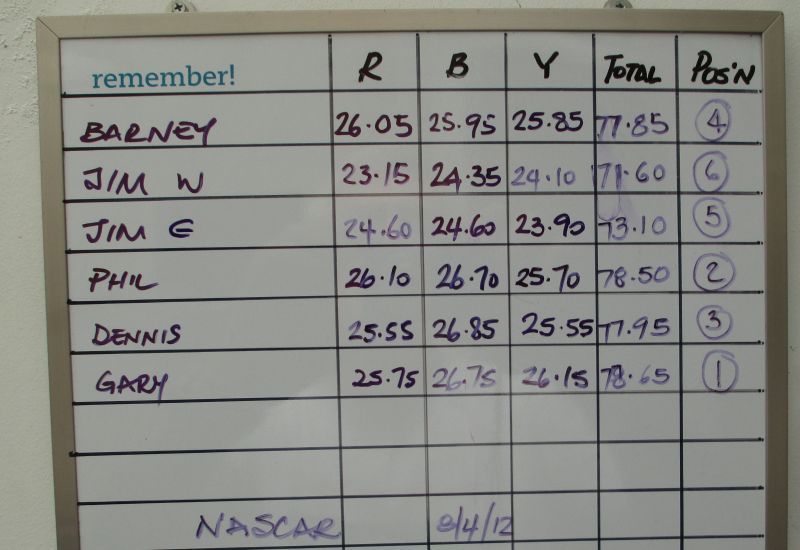 remember! R B Y TOTAL POS'N
BARNEY 26.05 25.95 25.85 77.85 4
JIM W 23.15 24.35 24.10 71.60 6
JIM G 24.60 24.60 23.90 73.10 5
PHIL 26.10 26.70 25.70 78.50 2
DENNIS 25.55 26.85 25.55 77.95 3
GARY 25.75 26.75 26.15 78.65 1
NASCAR 8/4/12